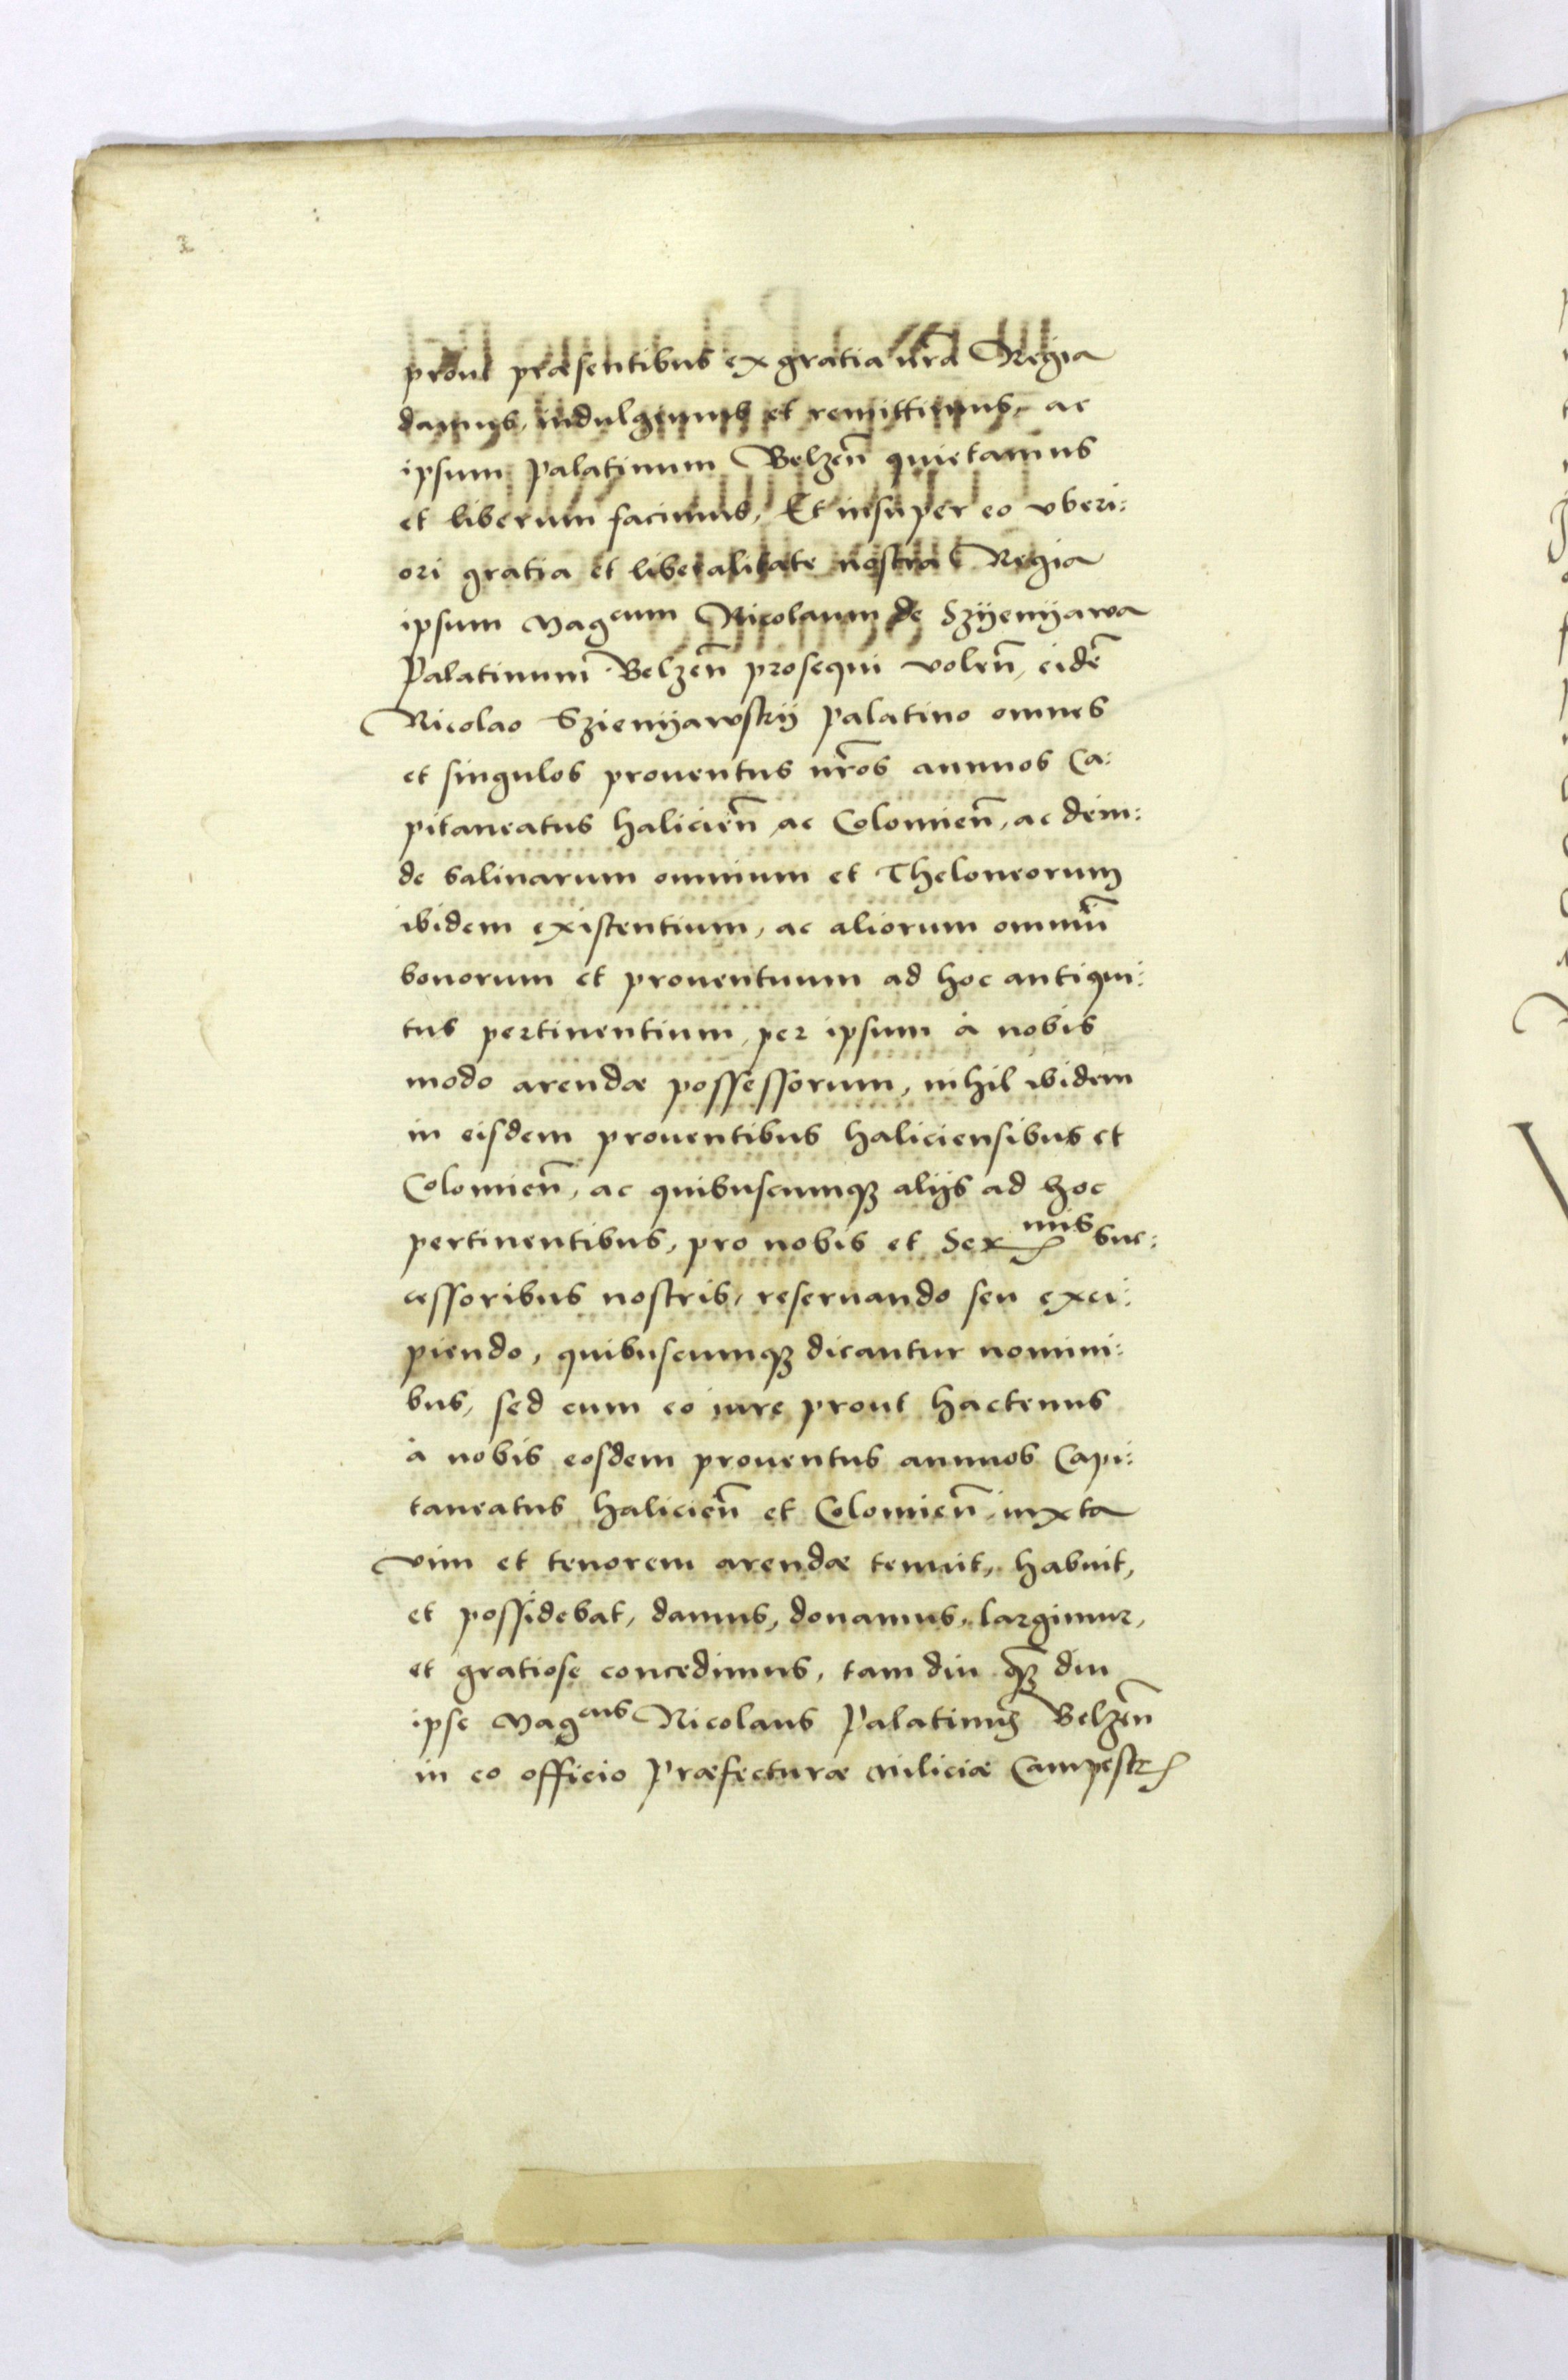 prout præsentibus ex gratia nr̃a Regia
damus, indulgemus et remittimus, ac
ipsum Palatinum Belzeñ quietamus
et liberum facimus, Et insuper eo vberi:
ori gratia et liberalitate nostra Regia
ipsum Magcum Nicolaum de Szyenyawa
Palatinum Belzeñ prosequi voleñ, eidẽ
Nicolao Szienyawsky Palatino omnes
et singulos prouentus nr̃os annuos Ca:
pitaneatus halicieñ ac Colomieñ, ac dein:
de salinarum omnium et Theloneorum
ibidem existentium, ac aliorum omniũ
bonorum et prouentuum ad hoc antiqui:
tus pertinentium, per ipsum à nobis
modo arendæ possessorum, nihil ibidem
in eisdem prouentibus haliciensibus et
Colomieñ, ac quibuscumqꝫ alijs ad hoc
pertinentibus, pro nobis et Ser mis Suc:
cessoribus nostris, reseruando seu exci:
piendo, quibuscumqꝫ dicantur nomini:
bus, sed cum eo iure prout hactenus
à nobis eosdem prouentus annuos Capi:
taneatus halicieñ et Colomieñ iuxta
vim et tenorem arendæ tenuit, habuit,
et possidebat, damus, donamus, largimur,
et gratiose concedimus, tam diu q̃ꝫ diu
ipse Magcus Nicolaus Palatinus Belzeñ
in eo officio Præfecturæ miliciæ Campestr